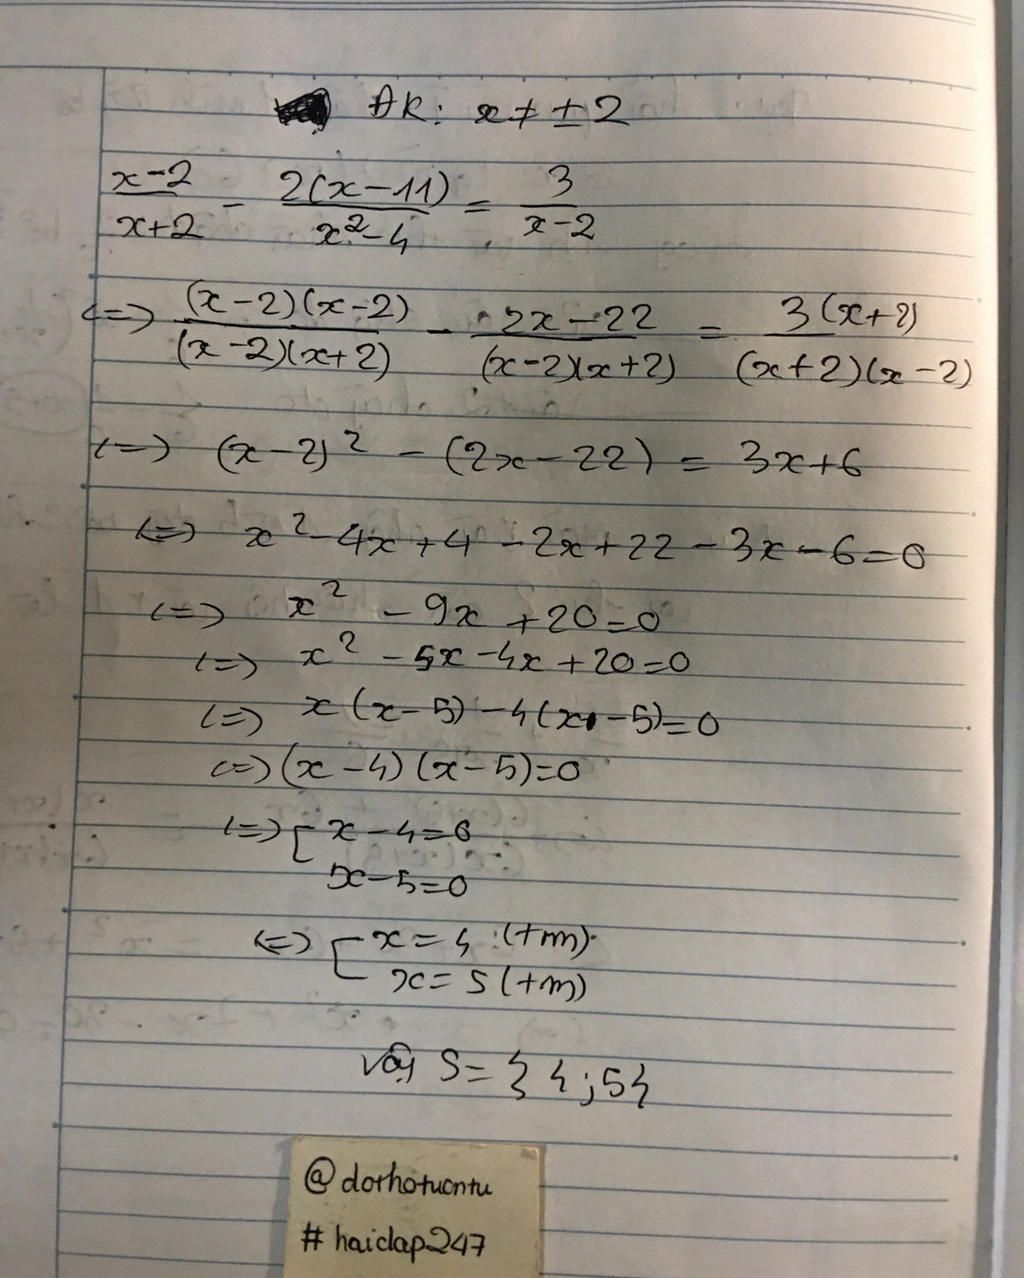 ĐK: x ≠ ±2
x-2/x+2 - 2(x-11)/x²-4 = 3/x-2
<=> (x-2)(x-2)/(x-2)(x+2) - 2x-22/(x-2)(x+2) = 3(x+2)/(x+2)(x-2)
<=> (x-2)² - (2x-22) = 3x+6
<=> x²-4x+4-2x+22-3x-6=0
<=> x² -9x +20=0
<=> x² -5x-4x+20=0
<=> x(x-5)-4(x-5)=0
<=> (x-4)(x-5)=0
<=> [ x-4=0
x-5=0
<=> [ x=4 (tm)
x=5 (tm)
Vậy S={4;5}
@dorhotuontu
#haidap247